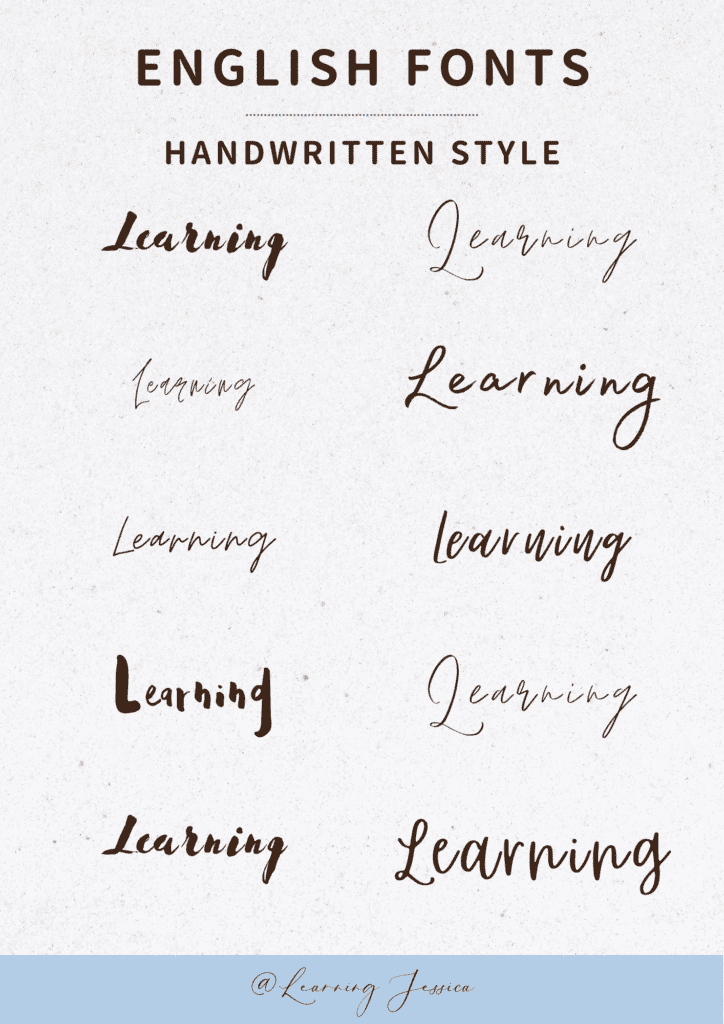 ENGLISH FONTS
HANDWRITTEN STYLE
Learning Learning
Learning Learning
Learning Learning
Learning Learning
Learning Learning
@Learning Jessica